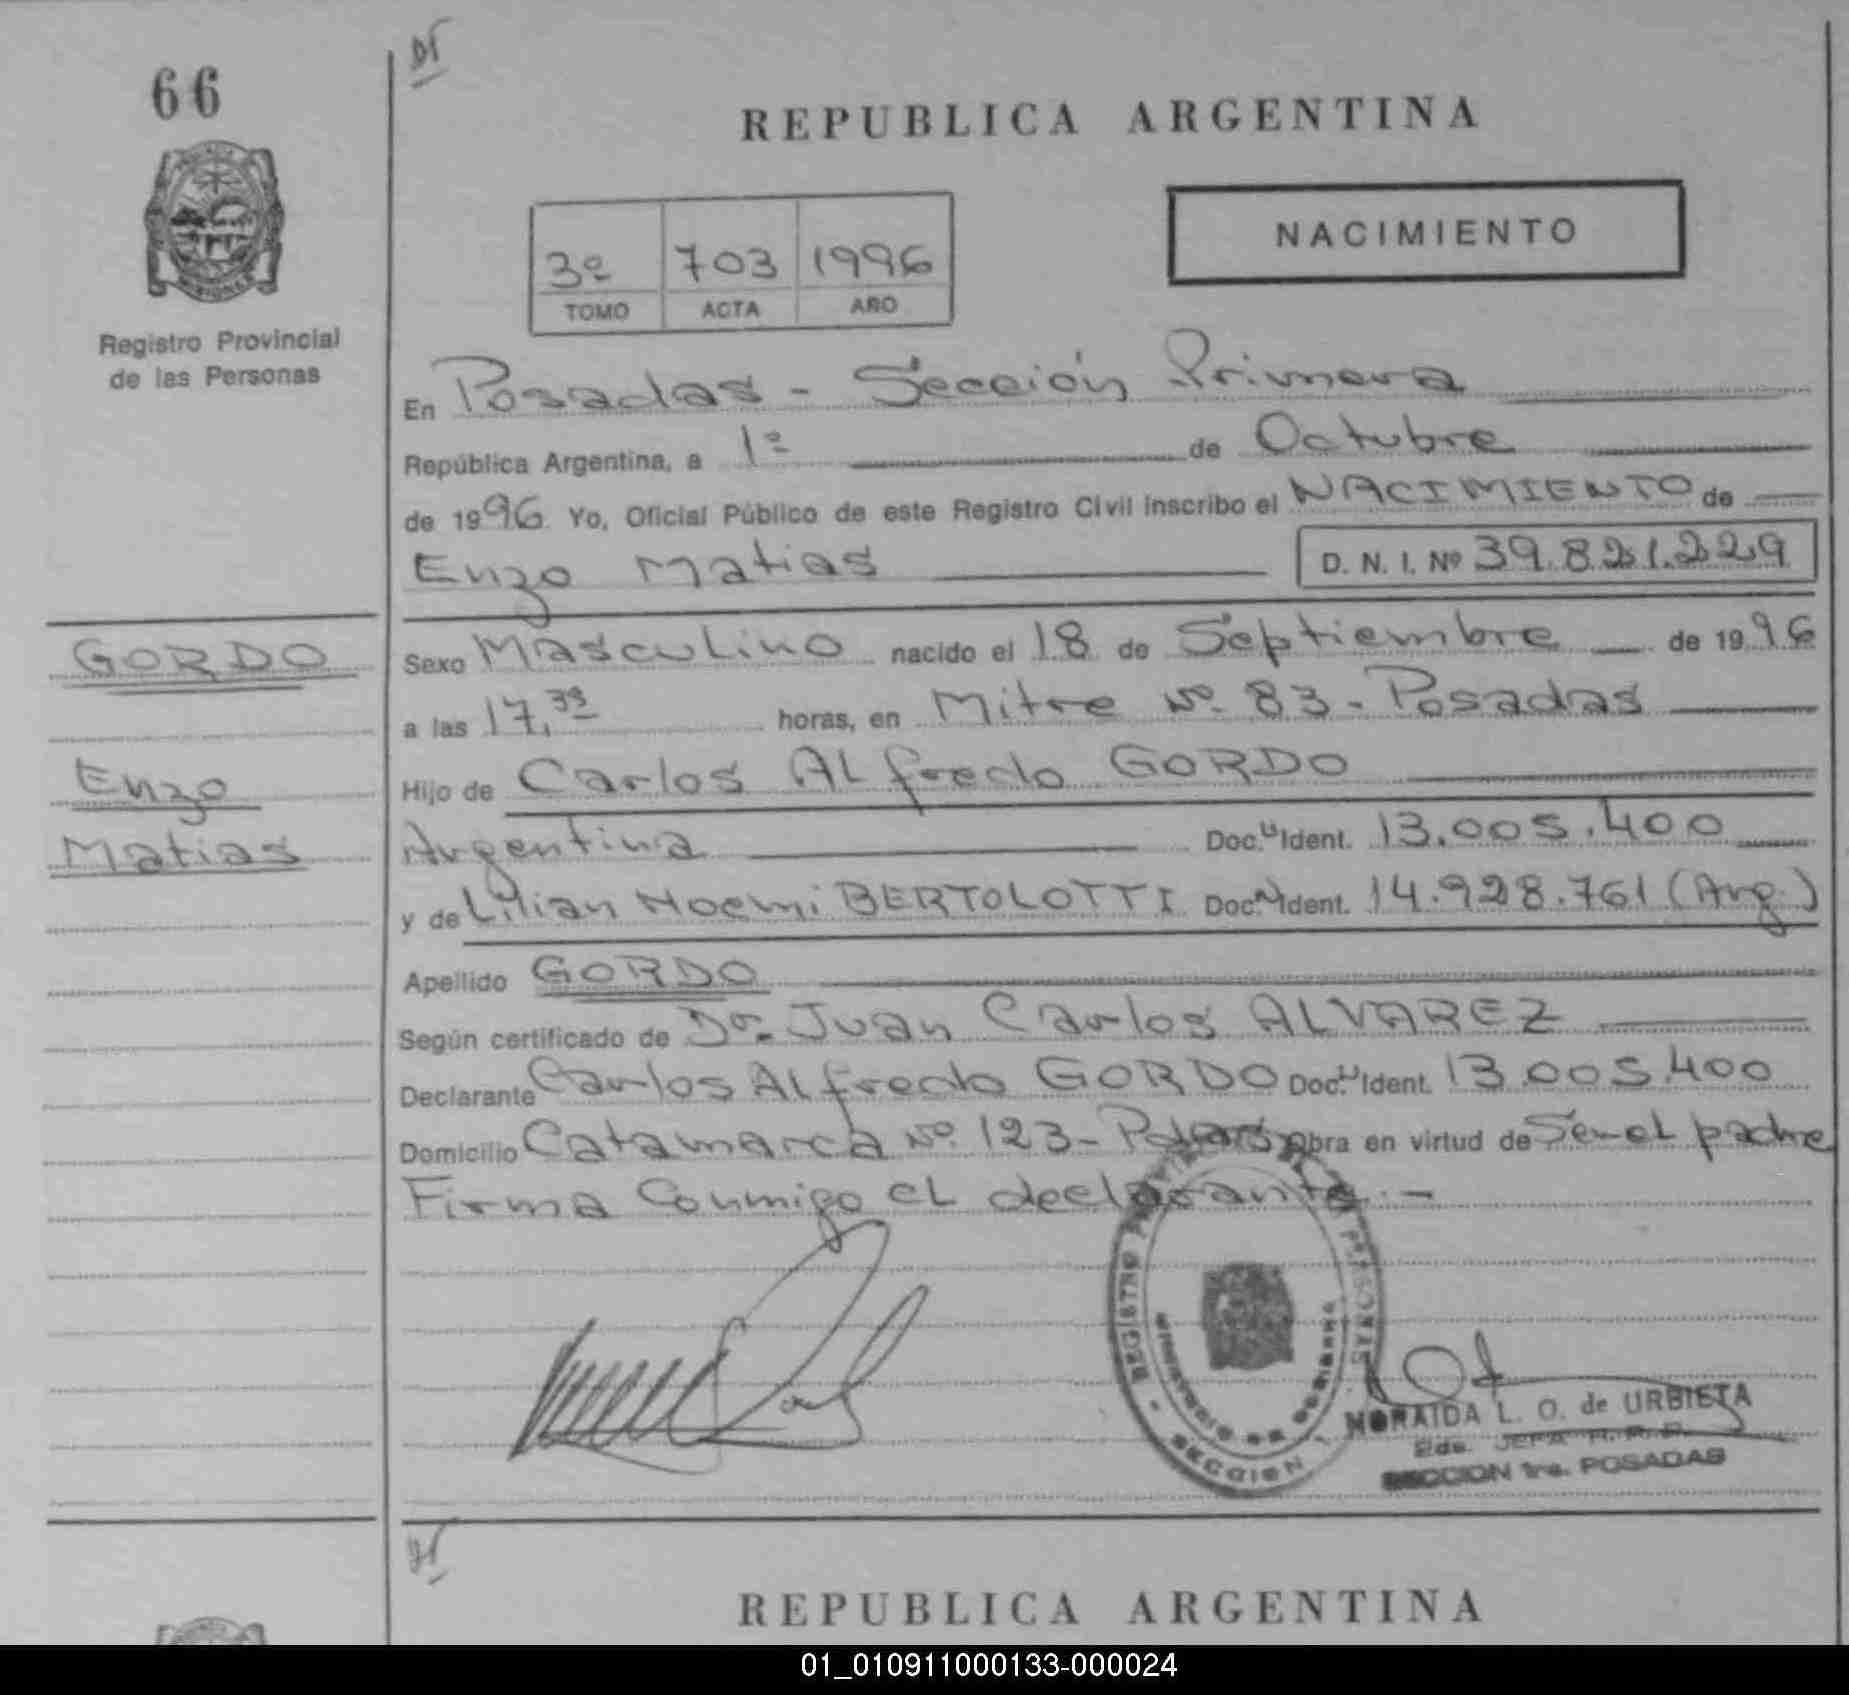 66
REPUBLICA ARGENTINA
NACIMIENTO
3º 703 1996
TOMO ACTA AÑO
Registro Provincial
de las Personas
En Posadas - Sección Primera
República Argentina, a 1º de Octubre
de 1996 Yo, Oficial Público de este Registro Civil inscribo el NACIMIENTO de
Enzo Matias D. N. I. Nº 39.821.229
GORDO
Enzo
Matias
Sexo Masculino nacido el 18 de Septiembre de 1996
a las 17, horas, en Mitre Nº 83 - Posadas
Hijo de Carlos ALfredo GORDO
Argentina Doc. Ident. 13.005.400
y de Lilian Noemi BERTOLOTTI Doc. Ident. 14.928.761 (Arg.)
Apellido GORDO
Según certificado de Dr. Juan Carlos ALVAREZ
Declarante Carlos ALfredo GORDO Doc. Ident. 13.005.400
Domicilio Catamarca Nº 123 - obra en virtud de Ser el padre
Firma Conmigo eL declarante. -
REGISTRO PERSONAS
SECCION
NORAIDA L. O. de URBIETA
JEFA
SECCION 1ra. POSADAS
REPUBLICA ARGENTINA
01_010911000133-000024